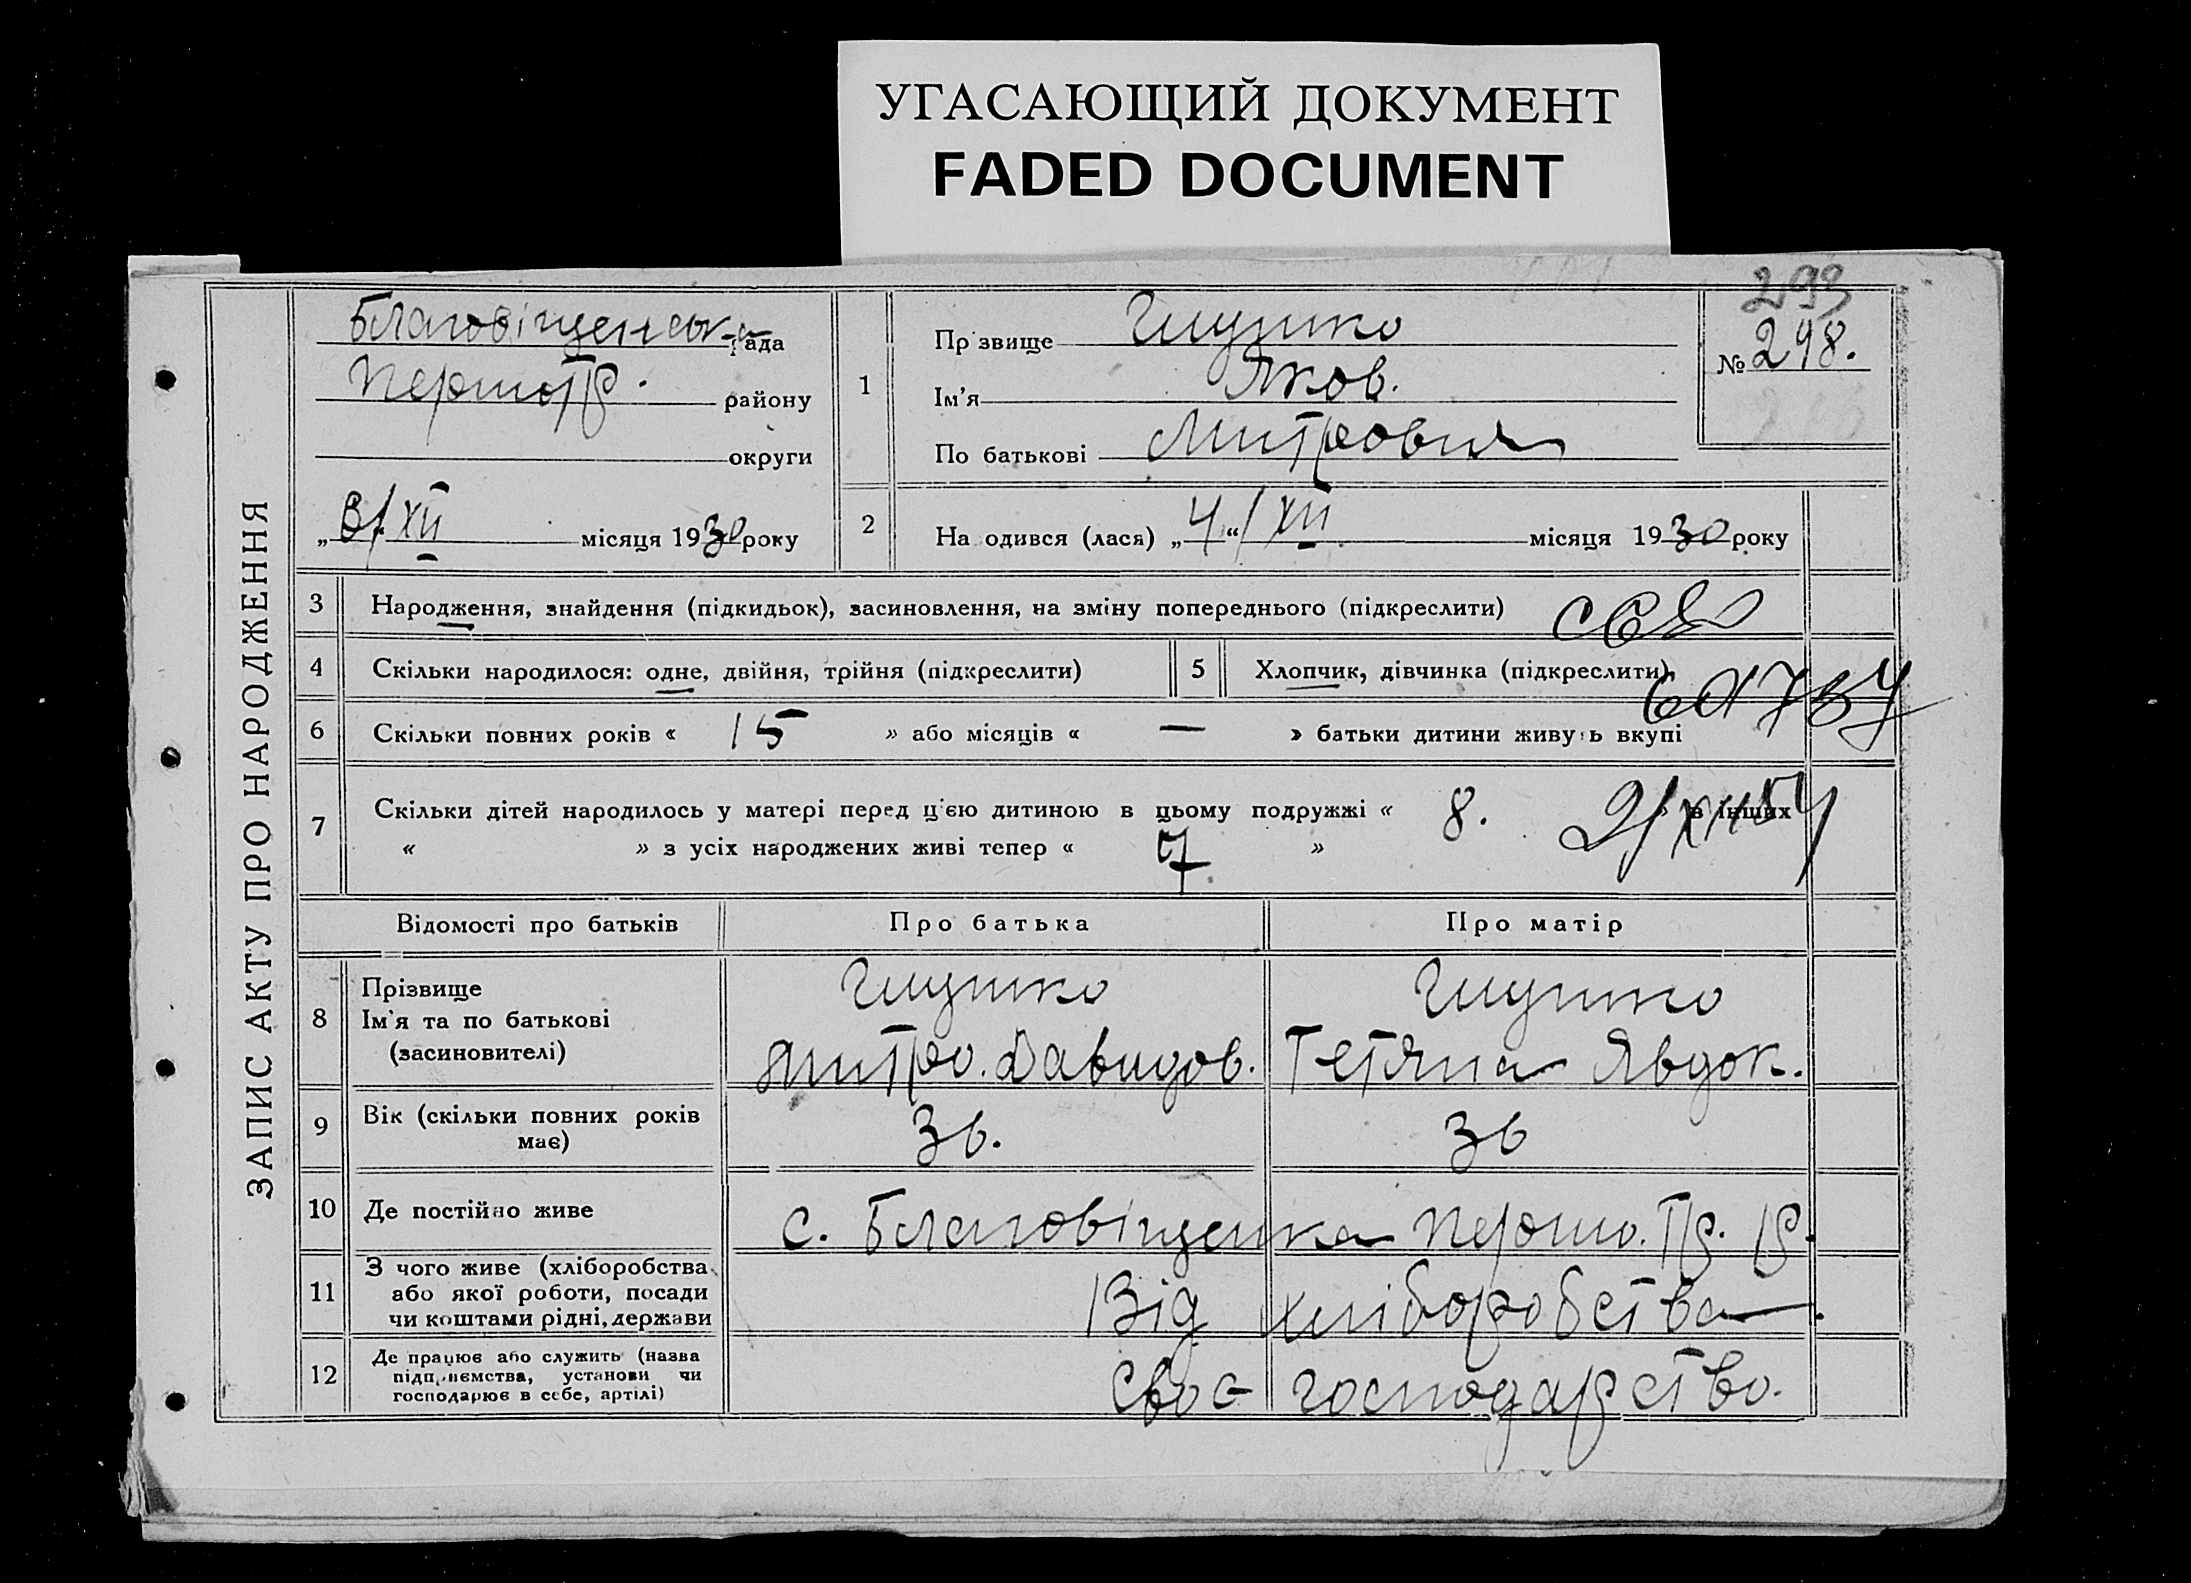 УГАСАЮЩИЙ ДОКУМЕНТ
FADED DOCUMENT
ЗАПИС АКТУ ПРО НАРОДЖЕННЯ
293
№ 298.
Благовіщенська рада
Першотр. району
округи
„ 8/XII місяця 1930 року
1
Прзвище Глушко
Ім'я Яков.
По батькові Митрович
2
На одився (лася) „4“/XII місяця 1930 року
3 Народження, знайдення (підкидьок), засиновлення, на зміну попереднього (підкреслити)
4 Скільки народилося: одне, двійня, трійня (підкреслити)
5 Хлопчик, дівчинка (підкреслити)
6 Скільки повних років « 15 » або місяців « — » батьки дитини живуь вкупі
7 Скільки дітей народилось у матері перед ц'єю дитиною в цьому подружжі « 8. » в інших
« » з усіх народжених живі тепер « 7 »
2/XII 54
Відомості про батьків Про батька Про матір
8 Прізвище
Ім'я та по батькові
(засиновителі)
Глушко
Митро. Давидов.
Глушко
Тетяна Явдок.
9 Вік (скільки повних років
має)
36. 36
10 Де постійно живе с. Благовіщенка Першо. Тр. р.
11 З чого живе (хліборобства
або якої роботи, посади
чи коштами рідні, держави
Від хліборобства.
12 Де працює або служить (назва
підприємства, установи чи
господарює в себе, артілі)
Своє господарство.